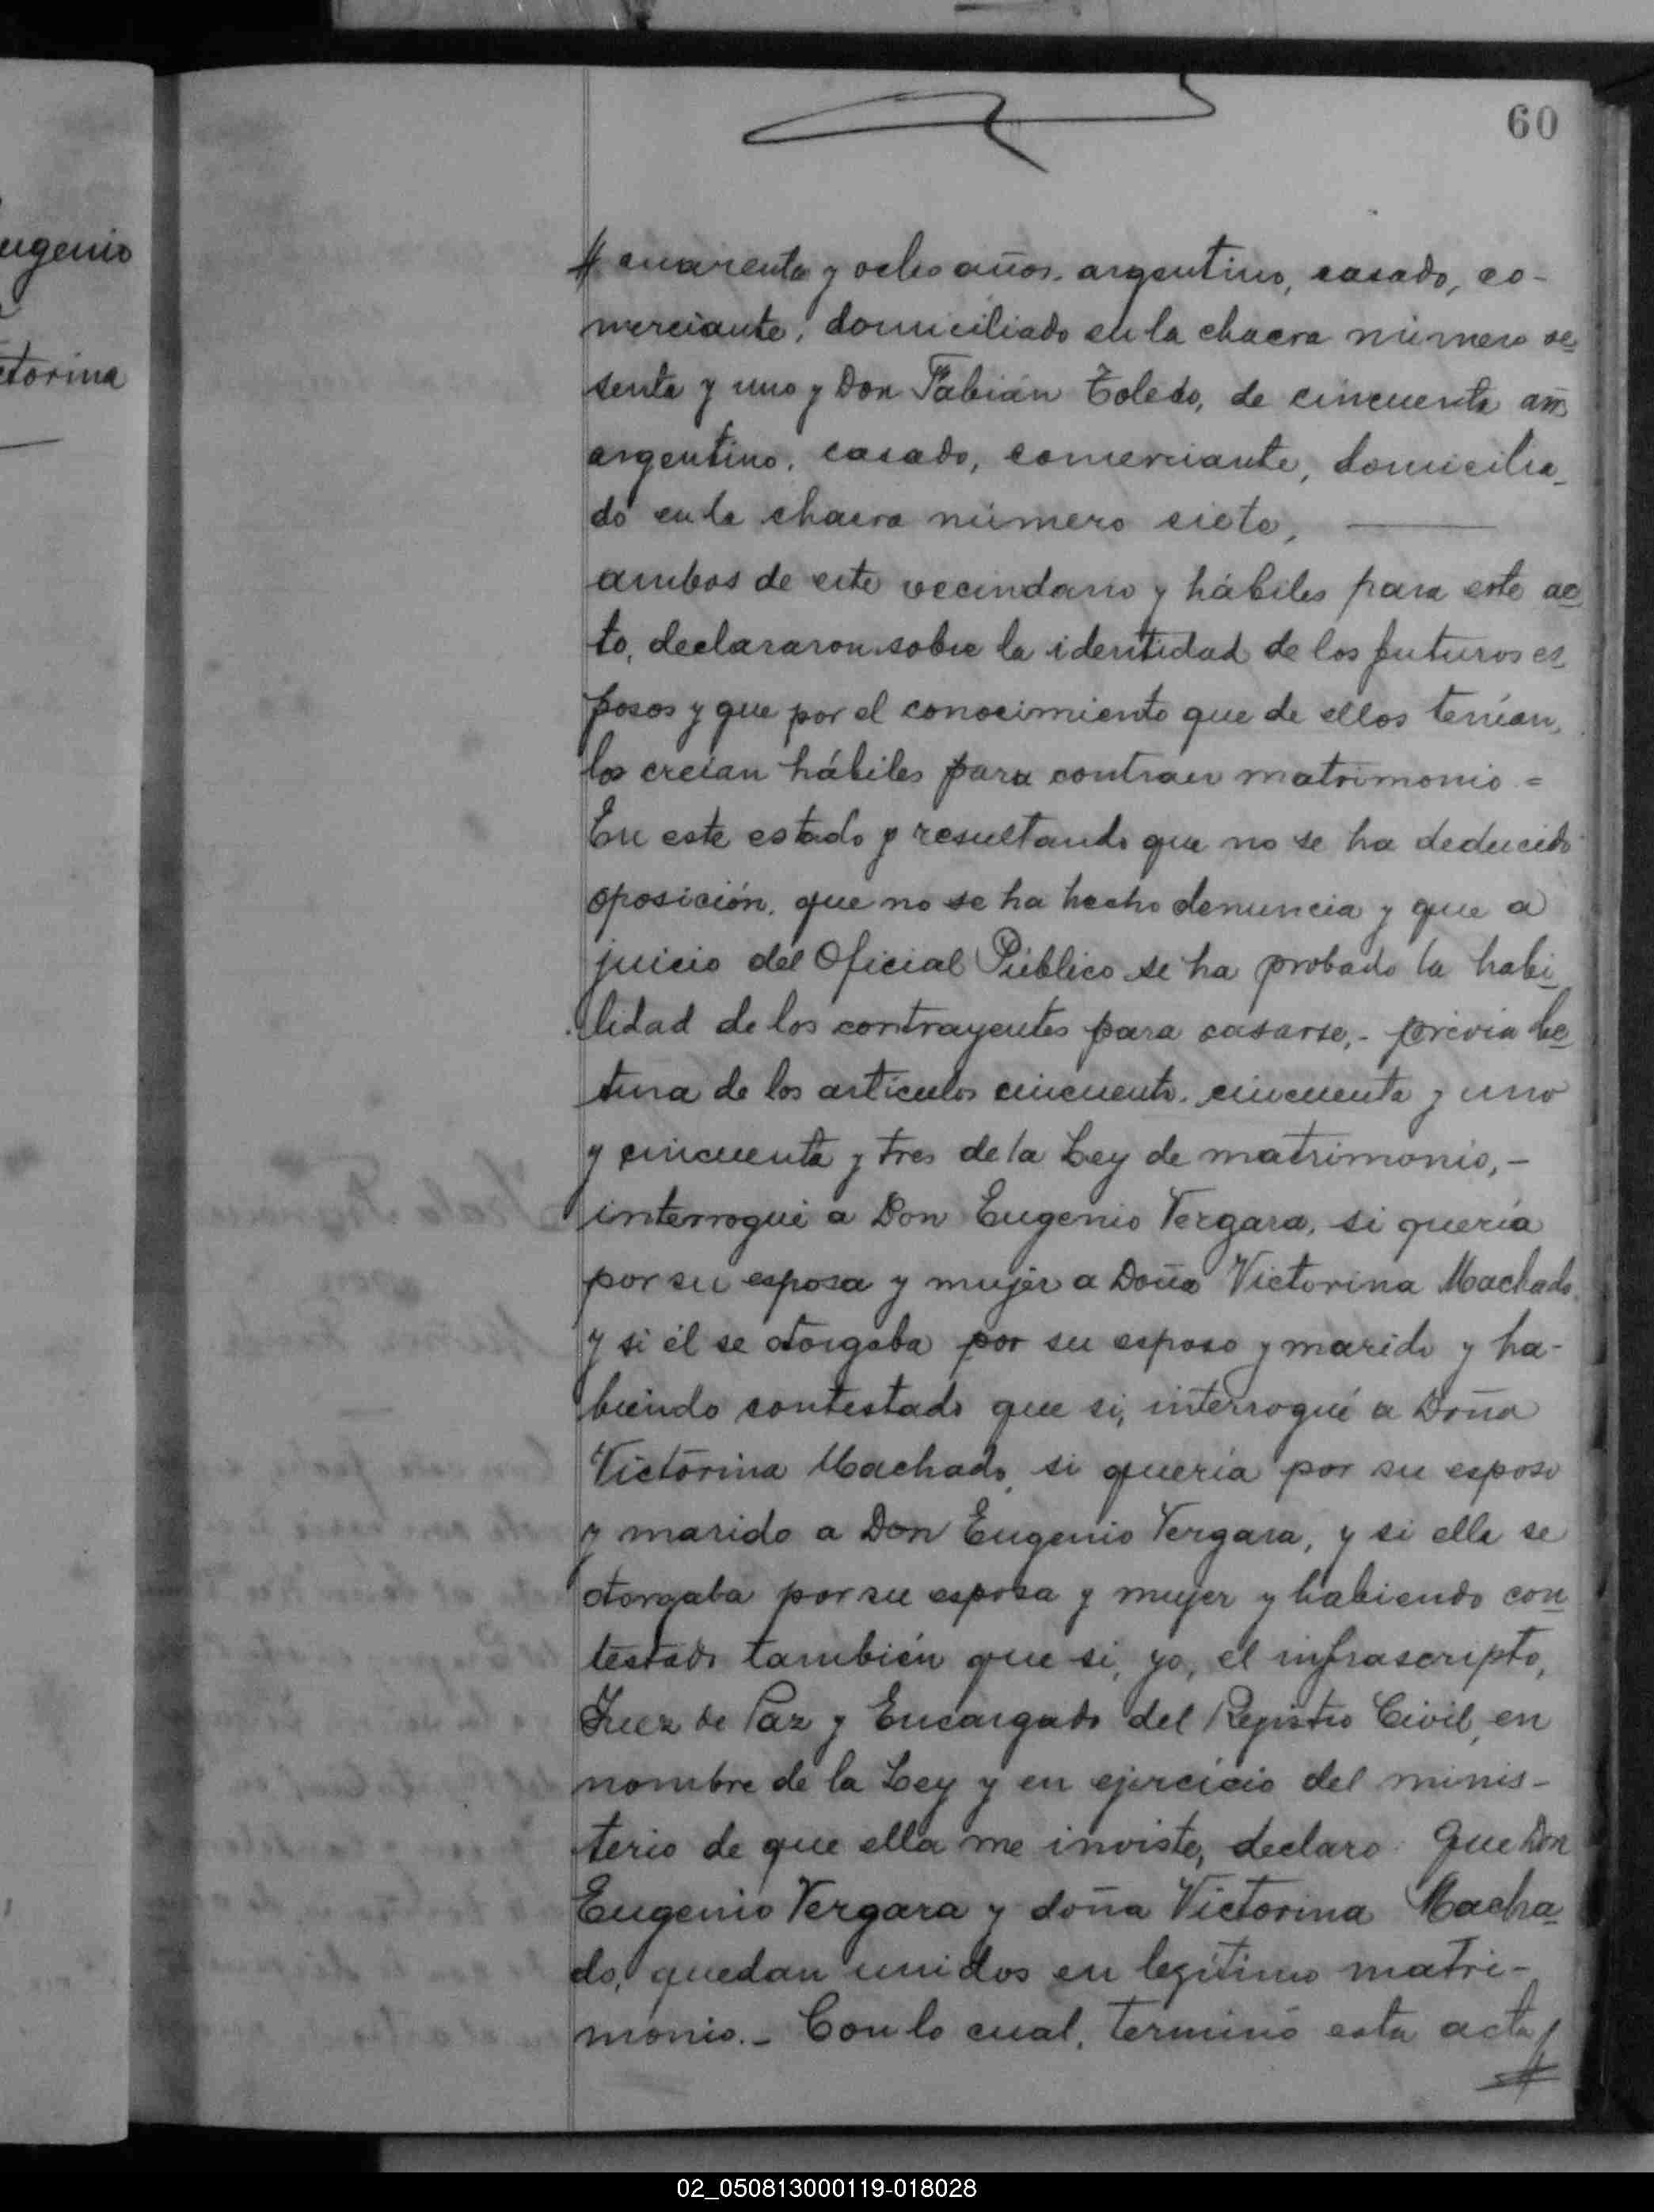 60
ugenio
torina
cuarenta y ocho años, argentino, casado, co-
merciante, domiciliado en la chacra número se
senta y uno y Don Fabián Toledo, de cincuenta añs
argentino, casado, comerciante, domicilia
do en la chacra número siete,
ambos de este vecindario y hábiles para este ac
to, declararon sobre la identidad de los futuros es
posos y que por el conocimiento que de ellos tenían,
los creían hábiles para contraer matrimonio =
En este estado y resultando que no se ha deducido
oposición, que no se ha hecho denuncia y que a
juicio del Oficial Público se ha probado la habi
lidad de los contrayentes para casarse,- previa lec
tura de los artículos cincuenta, cincuenta y uno
y cincuenta y tres de la Ley de matrimonio,-
interrogué a Don Eugenio Vergara, si quería
por su esposa y mujer a Doña Victorina Machado,
y si él se otorgaba por su esposo y marido y ha-
biendo contestado que si, interrogué a Doña
Victorina Machado, si quería por su esposo
y marido a Don Eugenio Vergara, y si ella se
otorgaba por su esposa y mujer y habiendo con
testado también que si, yo, el infrascripto,
Juez de Paz y Encargado del Registro Civil, en
nombre de la Ley y en ejercicio del minis-
terio de que ella me inviste, declaro: Que Don
Eugenio Vergara y doña Victorina Macha
do, quedan unidos en legítimo matri-
monio.- Con lo cual, terminó esta acta
02_050813000119-018028